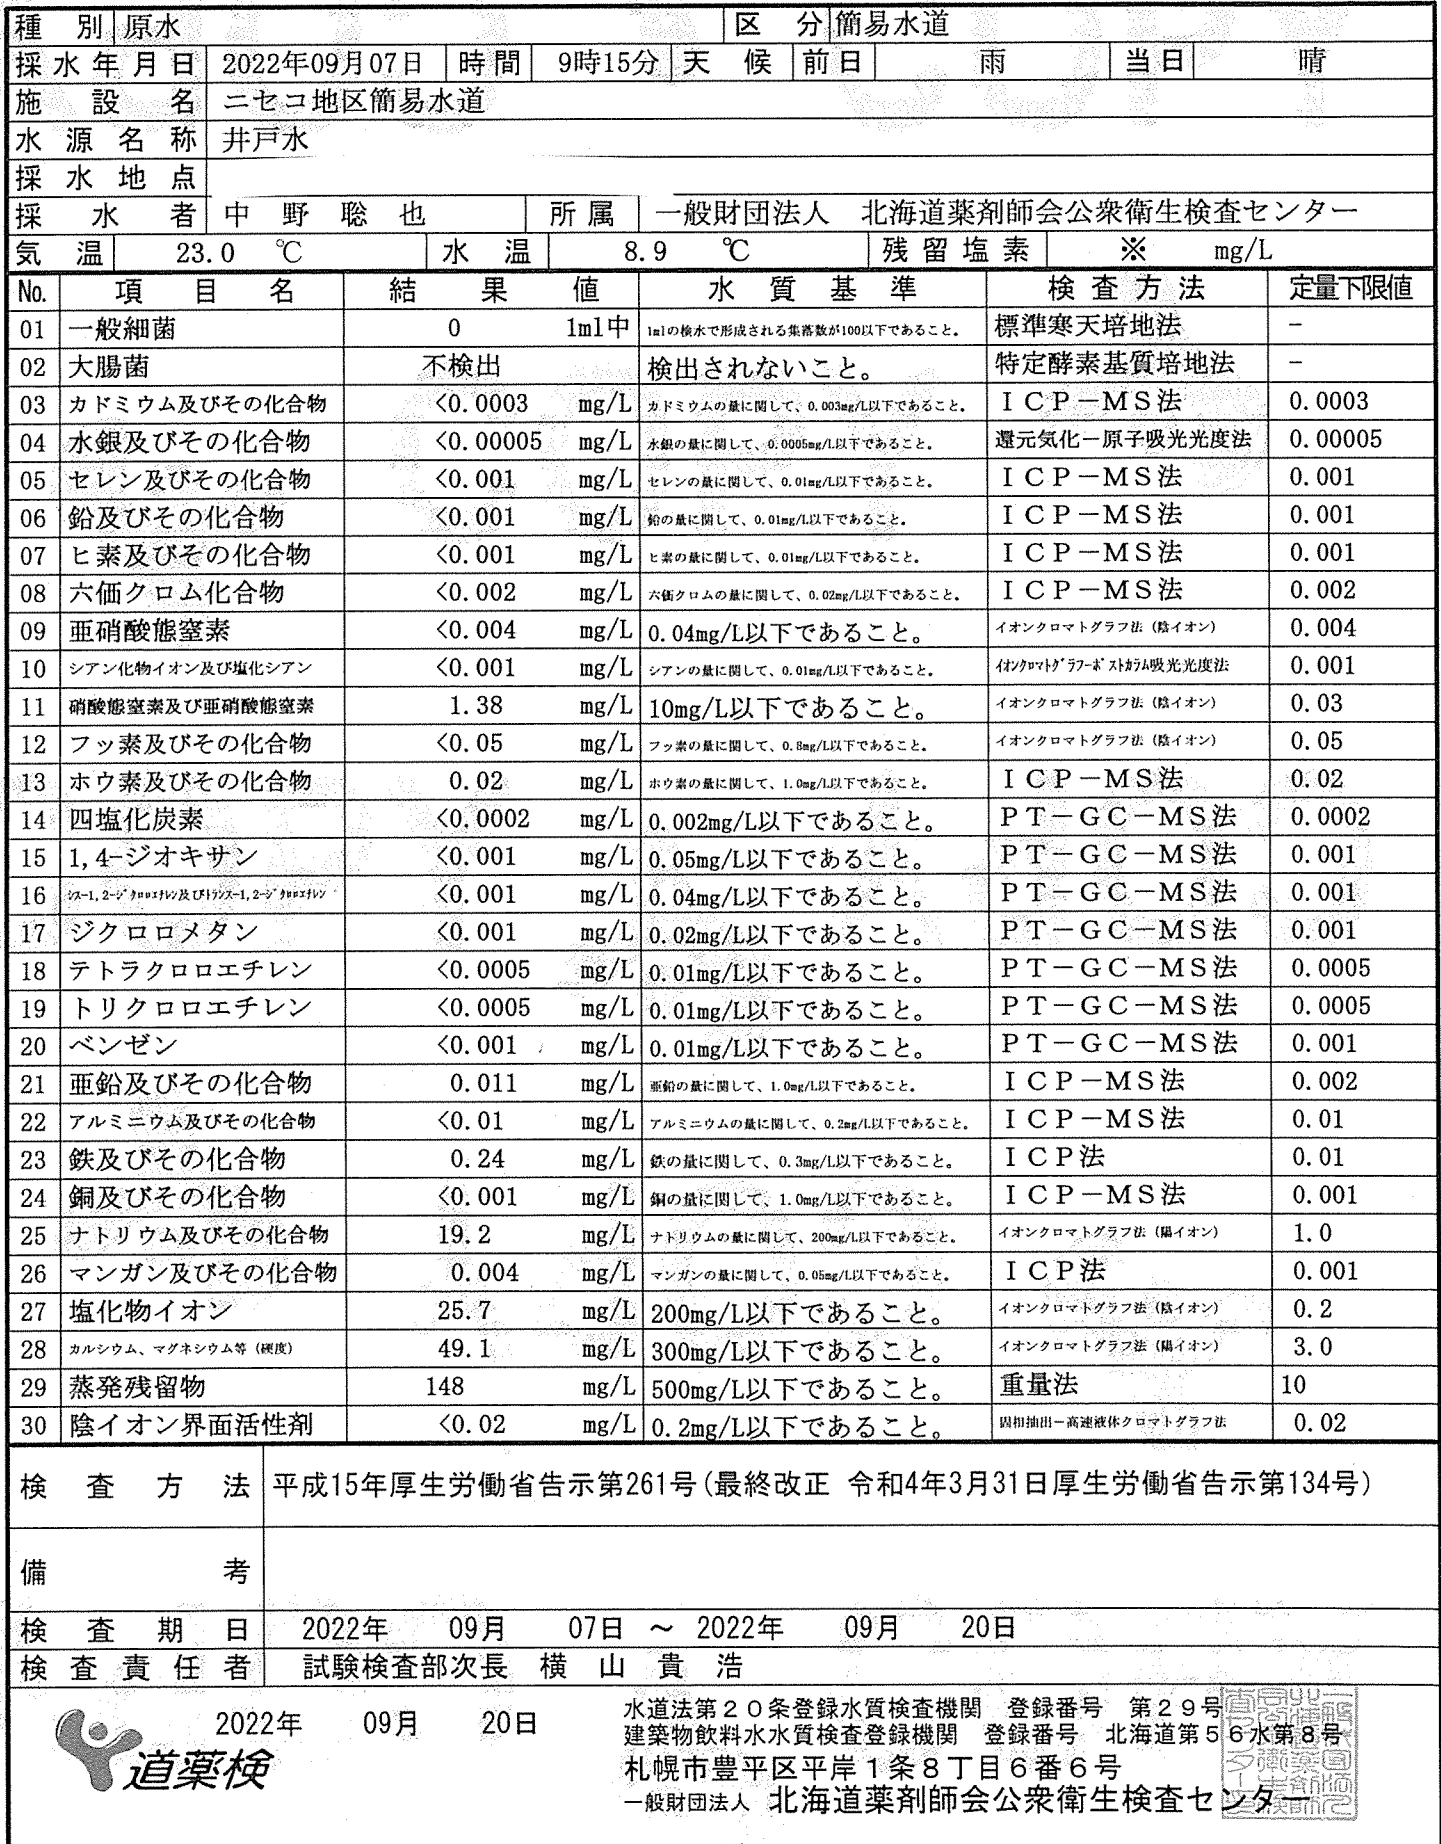 種 別 原水 区 分 簡易水道
採水年月日 2022年09月07日 時間 9時15分 天 候 前日 雨 当日 晴
施 設 名 ニセコ地区簡易水道
水 源 名 称 井戸水
採 水 地 点
採 水 者 中 野 聡 也 所属 一般財団法人 北海道薬剤師会公衆衛生検査センター
気 温 23.0 ℃ 水 温 8.9 ℃ 残留塩素 ※ mg/L
No. 項 目 名 結 果 値 水 質 基 準 検査方法 定量下限値
01 一般細菌 0 1ml中 1mlの検水で形成される集落数が100以下であること。 標準寒天培地法 −
02 大腸菌 不検出 検出されないこと。 特定酵素基質培地法 −
03 カドミウム及びその化合物 <0.0003 mg/L カドミウムの量に関して、0.003mg/L以下であること。 ICP−MS法 0.0003
04 水銀及びその化合物 <0.00005 mg/L 水銀の量に関して、0.0005mg/L以下であること。 還元気化−原子吸光光度法 0.00005
05 セレン及びその化合物 <0.001 mg/L セレンの量に関して、0.01mg/L以下であること。 ICP−MS法 0.001
06 鉛及びその化合物 <0.001 mg/L 鉛の量に関して、0.01mg/L以下であること。 ICP−MS法 0.001
07 ヒ素及びその化合物 <0.001 mg/L ヒ素の量に関して、0.01mg/L以下であること。 ICP−MS法 0.001
08 六価クロム化合物 <0.002 mg/L 六価クロムの量に関して、0.02mg/L以下であること。 ICP−MS法 0.002
09 亜硝酸態窒素 <0.004 mg/L 0.04mg/L以下であること。 イオンクロマトグラフ法（陰イオン） 0.004
10 シアン化物イオン及び塩化シアン <0.001 mg/L シアンの量に関して、0.01mg/L以下であること。 ｲｵﾝｸﾛﾏﾄｸﾞﾗﾌｰﾎﾟｽﾄｶﾗﾑ吸光光度法 0.001
11 硝酸態窒素及び亜硝酸態窒素 1.38 mg/L 10mg/L以下であること。 イオンクロマトグラフ法（陰イオン） 0.03
12 フッ素及びその化合物 <0.05 mg/L フッ素の量に関して、0.8mg/L以下であること。 イオンクロマトグラフ法（陰イオン） 0.05
13 ホウ素及びその化合物 0.02 mg/L ホウ素の量に関して、1.0mg/L以下であること。 ICP−MS法 0.02
14 四塩化炭素 <0.0002 mg/L 0.002mg/L以下であること。 PT−GC−MS法 0.0002
15 1,4-ジオキサン <0.001 mg/L 0.05mg/L以下であること。 PT−GC−MS法 0.001
16 ｼｽｰ1,2ｰｼﾞｸﾛﾛｴﾁﾚﾝ及びﾄﾗﾝｽｰ1,2ｰｼﾞｸﾛﾛｴﾁﾚﾝ <0.001 mg/L 0.04mg/L以下であること。 PT−GC−MS法 0.001
17 ジクロロメタン <0.001 mg/L 0.02mg/L以下であること。 PT−GC−MS法 0.001
18 テトラクロロエチレン <0.0005 mg/L 0.01mg/L以下であること。 PT−GC−MS法 0.0005
19 トリクロロエチレン <0.0005 mg/L 0.01mg/L以下であること。 PT−GC−MS法 0.0005
20 ベンゼン <0.001 mg/L 0.01mg/L以下であること。 PT−GC−MS法 0.001
21 亜鉛及びその化合物 0.011 mg/L 亜鉛の量に関して、1.0mg/L以下であること。 ICP−MS法 0.002
22 アルミニウム及びその化合物 <0.01 mg/L アルミニウムの量に関して、0.2mg/L以下であること。 ICP−MS法 0.01
23 鉄及びその化合物 0.24 mg/L 鉄の量に関して、0.3mg/L以下であること。 ICP法 0.01
24 銅及びその化合物 <0.001 mg/L 銅の量に関して、1.0mg/L以下であること。 ICP−MS法 0.001
25 ナトリウム及びその化合物 19.2 mg/L ナトリウムの量に関して、200mg/L以下であること。 イオンクロマトグラフ法（陽イオン） 1.0
26 マンガン及びその化合物 0.004 mg/L マンガンの量に関して、0.05mg/L以下であること。 ICP法 0.001
27 塩化物イオン 25.7 mg/L 200mg/L以下であること。 イオンクロマトグラフ法（陰イオン） 0.2
28 カルシウム、マグネシウム等（硬度） 49.1 mg/L 300mg/L以下であること。 イオンクロマトグラフ法（陽イオン） 3.0
29 蒸発残留物 148 mg/L 500mg/L以下であること。 重量法 10
30 陰イオン界面活性剤 <0.02 mg/L 0.2mg/L以下であること。 固相抽出−高速液体クロマトグラフ法 0.02
検 査 方 法 平成15年厚生労働省告示第261号(最終改正 令和4年3月31日厚生労働省告示第134号)
備 考
検 査 期 日 2022年 09月 07日 ～ 2022年 09月 20日
検査責任者 試験検査部次長 横 山 貴 浩
2022年 09月 20日
道薬検
水道法第２０条登録水質検査機関 登録番号 第２９号
建築物飲料水水質検査登録機関 登録番号 北海道第５６水第８号
札幌市豊平区平岸１条８丁目６番６号
一般財団法人 北海道薬剤師会公衆衛生検査センター